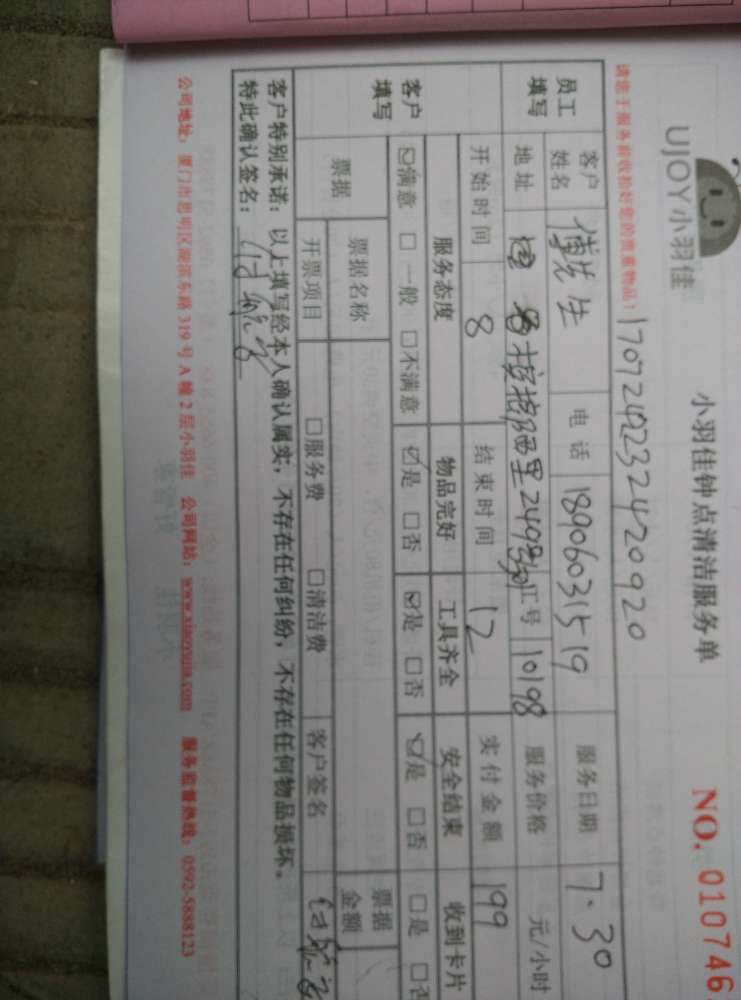 UJOY小羽佳
小羽佳钟点清洁服务单
NO. 010746
请您于服务前收拾好您的贵重物品!
1707242232420920
员工填写 客户姓名 傅先生 电话 18906031519 服务日期 7.30
地址 西里249号 工号 10198 服务价格 元/小时
开始时间 8 结束时间 12 实付金额 199
客户填写 服务态度 物品完好 工具齐全 安全结束 收到卡片
☑满意 □一般 □不满意 ☑是 □否 ☑是 □否 ☑是 □否 □是 □否
票据 票据名称 票据金额
开票项目 □服务费 □清洁费 客户签名
客户特别承诺:以上填写经本人确认属实,不存在任何纠纷,不存在任何物品损坏。
特此确认签名:
公司地址:厦门市思明区湖滨东路319号A幢2层小羽佳 公司网站:www.xiaoyujia.com 服务监督热线:0592-5888123